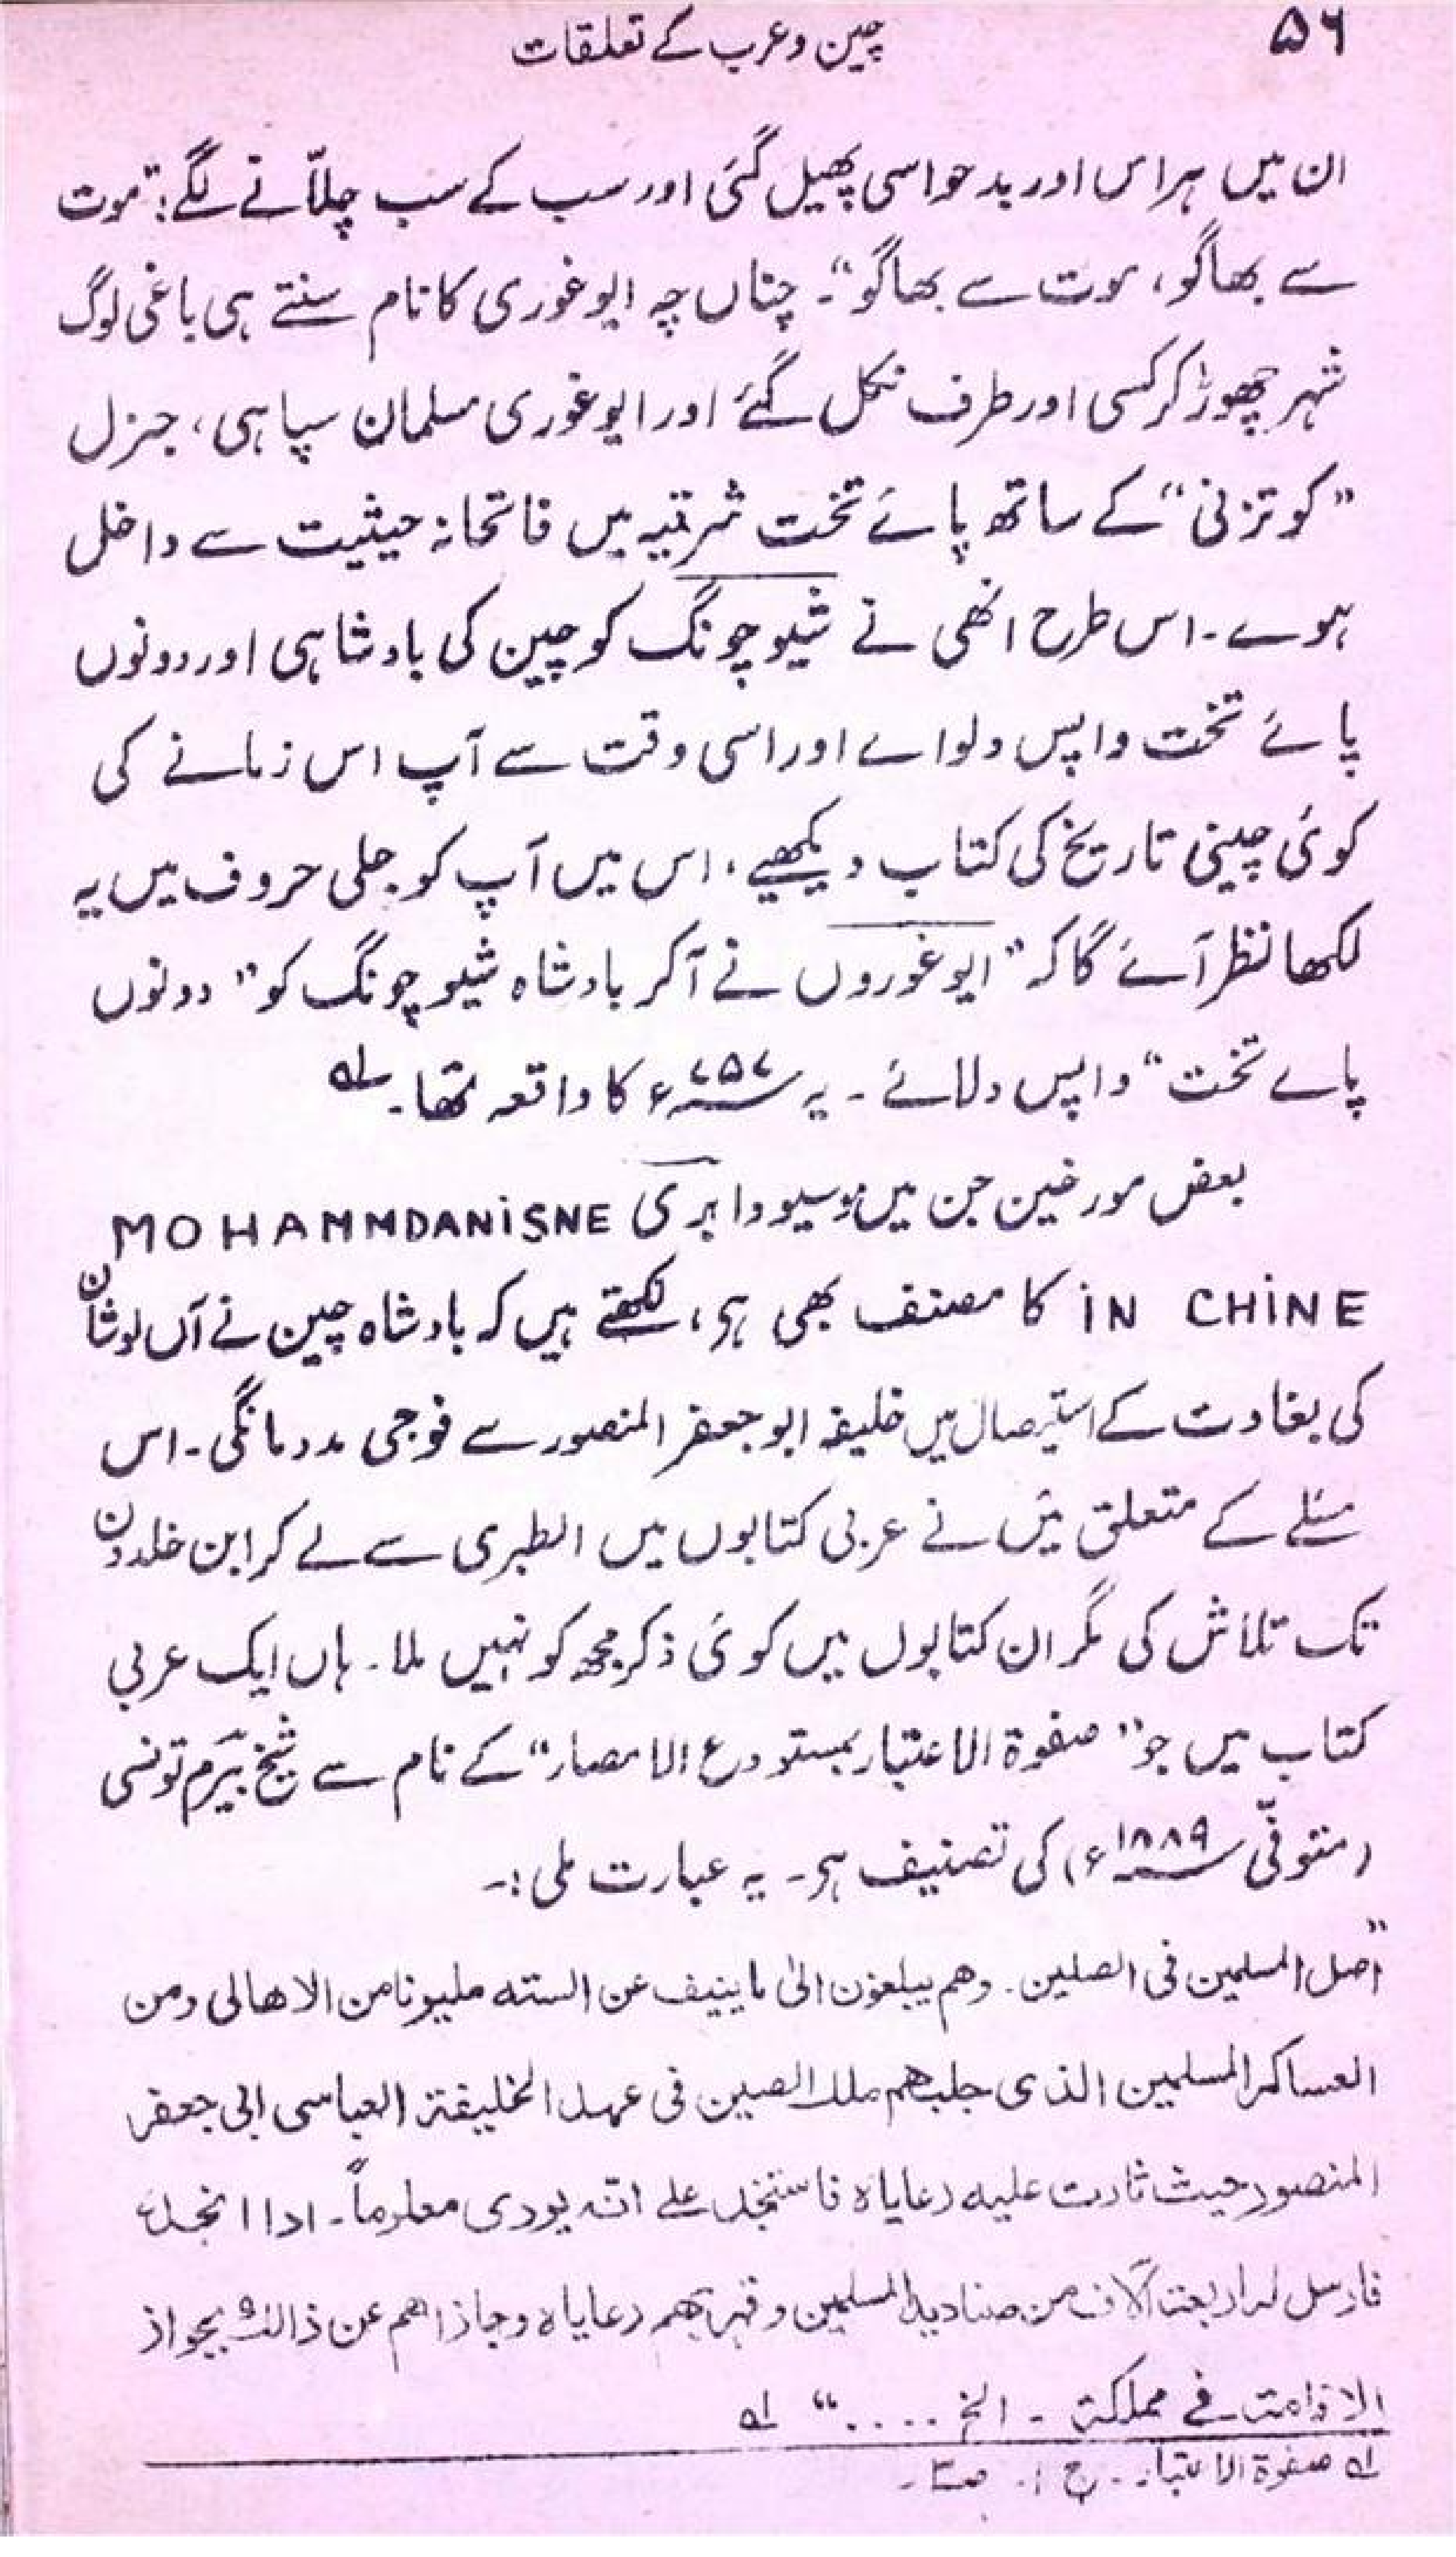 ۵۶
چین و عرب کے تعلقات
ان میں ہراس اور بدحواسی پھیل گئی اور سب کے سب چلّانے لگے: "موت
سے بھاگو، موت سے بھاگو"۔ چناں چہ ایوغوری کا نام سنتے ہی باغی لوگ
شہر چھوڑ کر کسی اور طرف نکل گئے اور ایوغوری مسلمان سپاہی، جنرل
"کوتزنی" کے ساتھ پائے تخت شرقیہ میں فاتحانہ حیثیت سے داخل
ہوے۔ اس طرح انھی نے شیوچونگ کو چین کی بادشاہی اور دونوں
پائے تخت واپس دلواے اور اسی وقت سے آپ اس زمانے کی
کوئی چینی تاریخ کی کتاب دیکھیے، اس میں آپ کو جلی حروف میں یہ
لکھا نظر آئے گا کہ "ایوغوروں نے آکر بادشاہ شیوچونگ کو" دونوں
پاے تخت" واپس دلائے۔ یہ ۷۵۷ء کا واقعہ تھا۔ لے
بعض مورخین جن میں موسیو دابری MOHAMMDANiSNE
iN CHiNE کا مصنف بھی ہی، لکھتے ہیں کہ بادشاہ چین نے آں لوشان
کی بغاوت کے استیصال میں خلیفہ ابو جعفر المنصور سے فوجی مدد مانگی۔ اس
مسئلے کے متعلق میَں نے عربی کتابوں میں الطبری سے لے کر ابن خلدون
تک تلاش کی مگر ان کتابوں میں کوئی ذکر مجھ کو نہیں ملا۔ ہاں ایک عربی
کتاب میں جو "صفوۃ الاعتبار بمستودع الامصار" کے نام سے شیخ بیَرم تونسی
(متوفّی ۱۸۸۹ء) کی تصنیف ہی۔ یہ عبارت ملی:۔
"اصل المسلمین فی الصلین۔ وھم یبلغون الیٰ ما ینیف عن الستہ ملیونا من الاھالی ومن
العساکر المسلمین الذی جلبھم ملک الصین فی عھد الخلیفۃ العباسی ابی جعفر
المنصور حیث ثارت علیہ رعایاہ فاستنجد علے انّہ یودی معلوماً۔ اذا انجدہ
فارسل لہ اربعۃ آلاف من صنادید المسلمین وقھر بھم رعایاہ وجازاھم عن ذالک بجواز
الاقامۃ فے مملکتہ۔ الخ ...." لے
لے صفوۃ الاعتبار۔ ج ۱۔